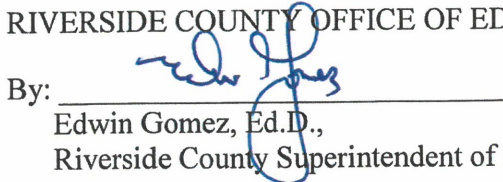 RIVERSIDE COUNTY OFFICE OF ED
By:
Edwin Gomez, Ed.D.,
Riverside County Superintendent of